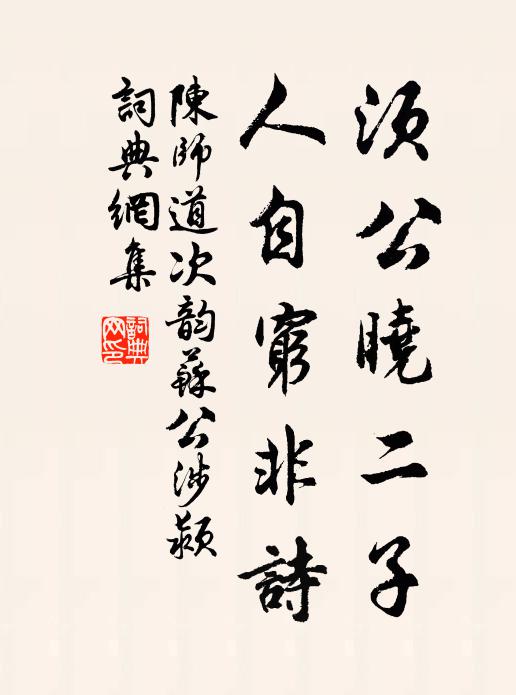 須公曉二子
人自窮非詩
陳師道次韵蘇公涉颍
詞典網集
詞典
网印